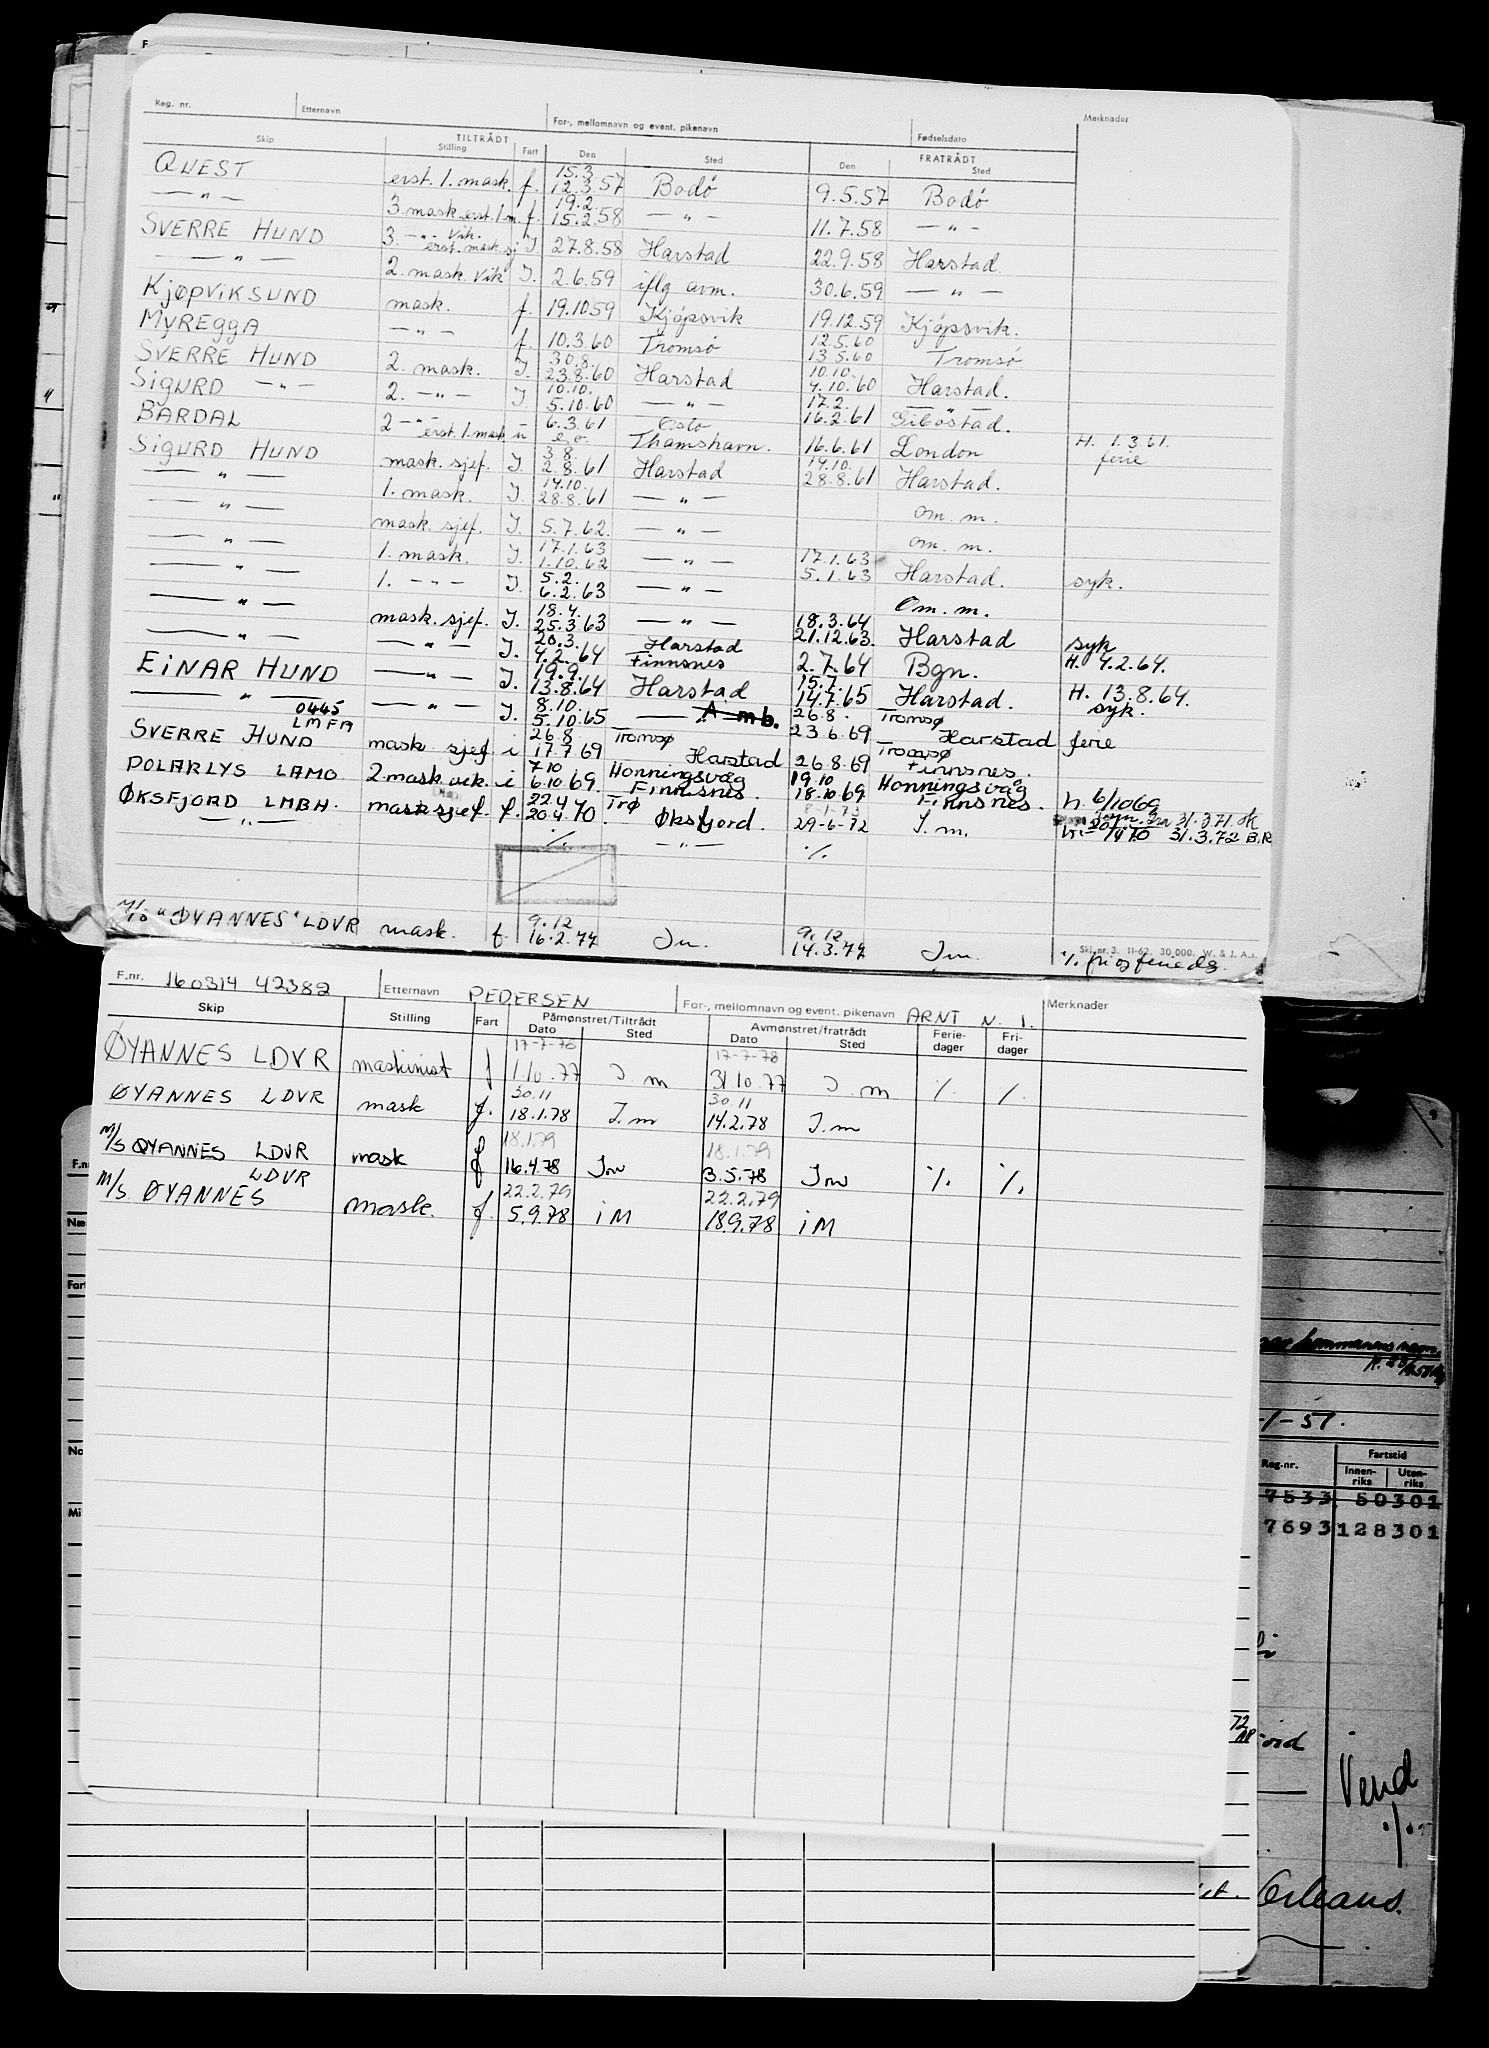 Reg. nr. Etternavn For-, mellomnavn og event. pikenavn Fødselsdato Merknader
TILTRÅDT FRATRÅDT
Skip Stilling Fart Den Sted Den Sted
QUEST erst. 1. mask. f. 15.3. 12.3.57 Bodø 9.5.57 Bodø
— " — 3. mask. erst. 1 m. f. 19.2. 15.2.58 — " — 11.7.58 — " —
SVERRE HUND 3. — " — vik. erst. mask. sj I. 27.8.58 Harstad 22.9.58 Harstad
— " — 2. mask. vik I. 2.6.59 iflg avm. 30.6.59 — " —
KJØPVIKSUND mask. f. 19.10.59 Kjøpsvik 19.12.59 Kjøpsvik.
MYREGGA — " — f. 10.3.60 Tromsø 12.5.60 13.5.60 Tromsø
SVERRE HUND 2. mask. I. 30.8. 23.8.60 Harstad 10.10. 4.10.60 Harstad.
SIGURD — " — 2. — " — I 10.10. 5.10.60 — " — 17.2. 16.2.61 — " — Gibostad.
BARDAL 2 — " — erst. 1. mask. u 6.3.61 e.o. Oslo Thamshavn. 16.6.61 London H. 1.3.61. ferie
SIGURD HUND mask. sjef. I. 3.8. 2.8.61 Harstad 14.10. 28.8.61 Harstad.
— " — 1. mask. I. 14.10. 28.8.61 — " — om. m.
— " — mask. sjef. I. 5.7.62. — " — om. m.
— " — 1. mask. I. 17.1.63 1.10.62 — " — 17.1.63 5.1.63 Harstad. syk.
— " — 1. — " — I 5.2. 6.2.63 — " — Om. m.
— " — mask. sjef. I. 18.4. 25.3.63 — " — 18.3.64 21.12.63 Harstad syk
— " — — " — I. 20.3. 4.2.64 Harstad Finnsnes 2.7.64 Bgn. H. 4.2.64.
EINAR HUND — " — I. 19.9. 13.8.64 Harstad 15.7. 14.7.65 Harstad. H. 13.8.64. syk.
— " — 0445 — " — I. 8.10. 5.10.65 — " — A mb. 26.8. 23.6.69 Tromsø Harstad ferie
SVERRE HUND LMFA mask sjef i 26.8 17.7.69 Tromsø Harstad 26.8.69 Tromsø Finnsnes.
POLARLYS LAMO 2.mask.vik. i 7.10 6.10.69. Honningsvåg Finnsnes. 19.10 18.10.69 Honningsvåg Finnsnes. h. 6/10 69
ØKSFJORD LMBH. mask sjef f. 22.4 20.4.70 Trø Øksfjord. 29-6-72 I. m. 31.3.71
— " — ./. — " — ./. 31.3.72 B.R
M/S "ØYANNES" LDVR mask. f. 9.12 16.2.77 Im. 9.12 14.3.77 Im ./. fri og feriedg.
Skj. nr. 3. 11-62. 30.000. W. & J. A.s.
F.nr. 160314 42382 Etternavn PEDERSEN For-, mellomnavn og event. pikenavn ARNT N. I. Merknader
Skip Stilling Fart Påmønstret/Tiltrådt Dato Sted Avmønstret/fratrådt Dato Sted Ferie-dager Fri-dager
ØYANNES LDVR maskinist f 17-7-78 1.10.77 I. m 17-7-78 31.10.77 I. m ./. ./.
ØYANNES LDVR mask f. 30.11 18.1.78 I.m 30.11 14.2.78 I.m
M/S ØYANNES LDVR mask f 18.1.79 16.4.78 Im 18.1.79 3.5.78 Im ./. ./.
M/S. ØYANNES LDVR mask. f. 22.2.79 5.9.78 i M 22.2.79 18.9.78 i M
-1-51.
Reg.nr. Fartstid
Innen-riks Uten-riks
7533 50301
7693 128301
Vend
./.
Orleans.